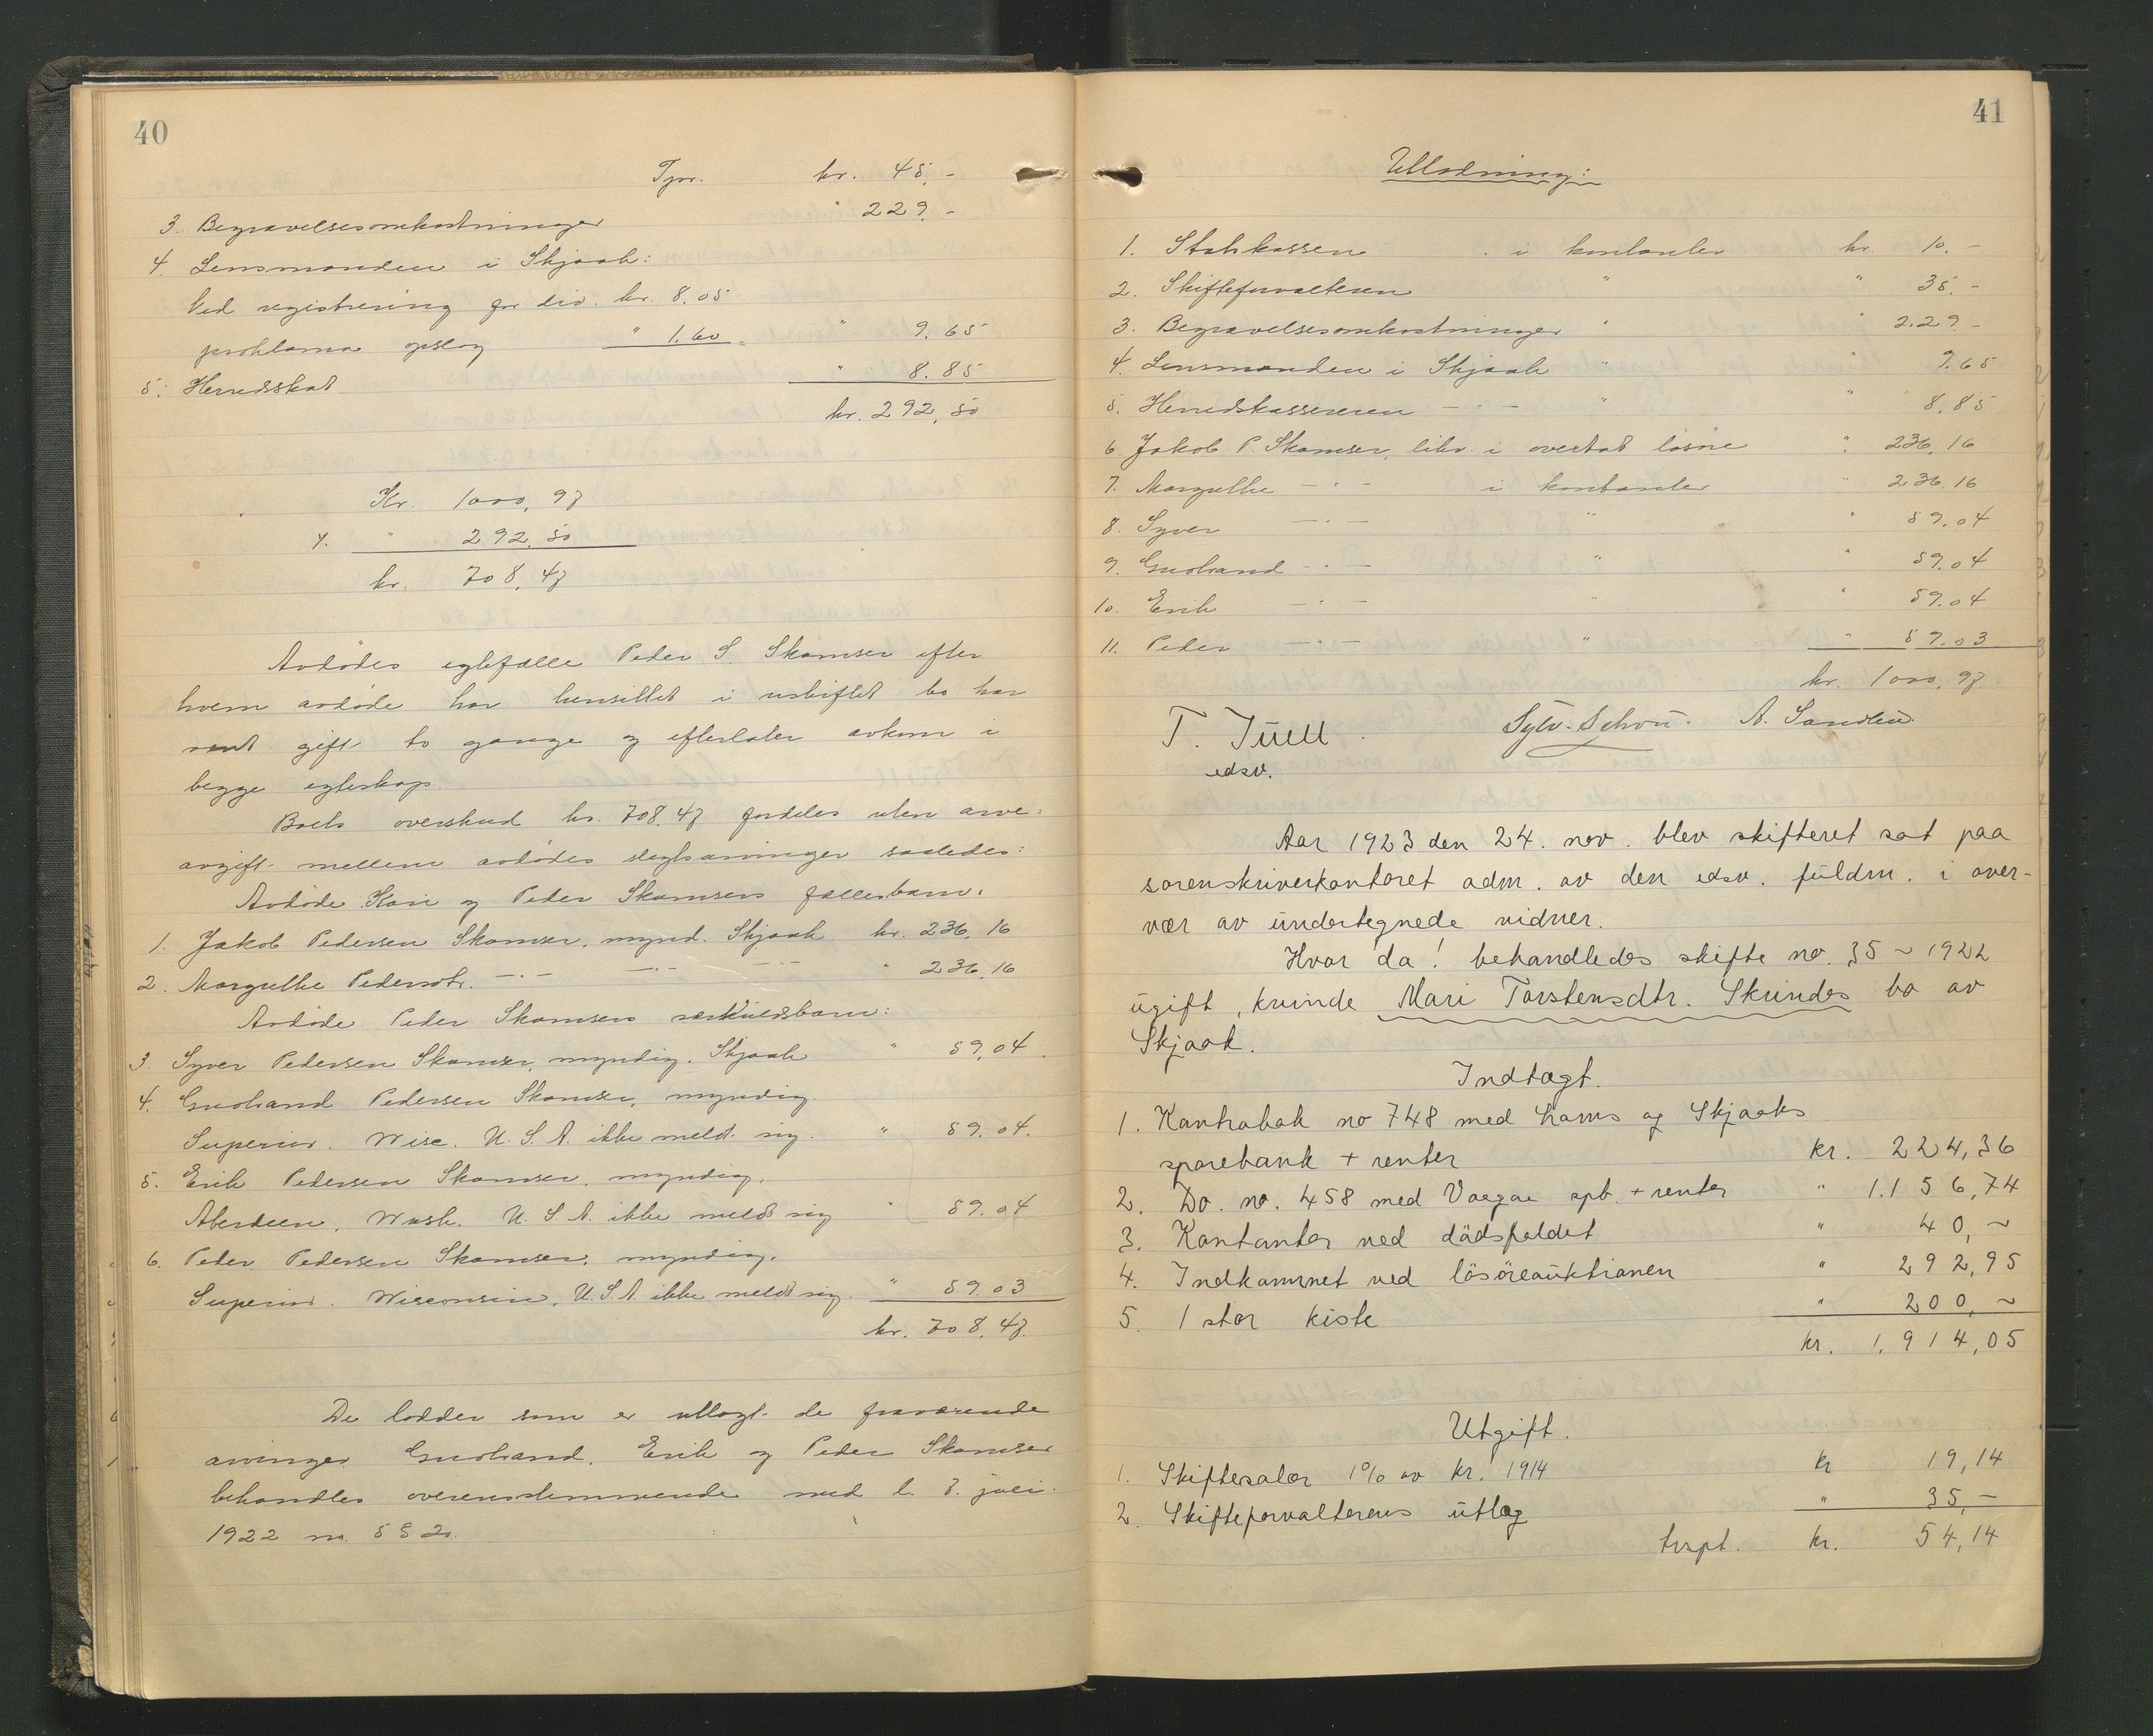 40
Tpr. kr. 45.-
3. Begravelsesomkostninger " 229.-
4. Lensmanden i Skjaak:
Ved registrering for div. kr. 8.05
proklama opslag " 1.60 = " 9.65
5. Herredsskat " 8.85
kr. 292,50
Kr. 1000,97
÷ " 292,50
kr. 708,47
Avdødes egtefælle Peder S. Skamser efter
hvem avdøde har hensittet i uskiftet bo har
vært gift to gange og efterlater avkom i
begge egteskap.
Boets overskud kr. 708,47 fordeles uten arve=
avgift mellem avdødes slegtsarvinger saaledes:
Avdøde Kari og Peder Skamsers fællesbarn:
1. Jakob Pedersen Skamser, mynd. Skjaak kr. 236,16
2. Margrethe Pedersdtr. -"- -"- -"- " 236.16
Avdøde Peder Skamsers særkuldsbarn:
3. Syver Pedersen Skamser, myndig. Skjaak " 59,04.
4. Gudbrand Pedersen Skamser, myndig.
Superior. Wisc. U.S.A. ikke meldt sig. " 59.04.
5. Erik Pedersen Skamser, myndig.
Aberdeen, Wash. U.S.A. ikke meldt sig " 59.04
6. Peder Pedersen Skamser, myndig.
Superior. Wisconsin, U.S.A. ikke meldt sig. " 59.03
kr. 708,47.
De lodder som er utlagt de fraværende
arvinger Gudbrand, Erik og Peder Skamser
behandles overensstemmende med l. 7. juli
1922 nr. 5 § 2.
41
Utlodning:
1. Statskassen i kontanter kr. 10.-
2. Skifteforvalteren " " 35.-
3. Begravelsesomkostninger " " 229.-
4. Lensmanden i Skjaak " " 9.65
5. Herredskassereren -"- " " 8.85
6. Jakob P. Skamser, likv. i overtat løsøre " 236,16
7. Margrethe -"- i kontanter " 236.16
8. Syver -"- " " 59.04
9. Gudbrand -"- " " 59.04
10. Erik -"- " " 59.04
11. Peder -"- " " 59.03
kr. 1000,97
T. Juell. Sylv. Schou. A. Sandlien
edsv.
Aar 1923 den 24. nov. blev skifteret sat paa
sorenskriverkontoret adm. av den edsv. fuldm. i over-
vær av undertegnede vidner.
Hvor da! behandledes skifte no. 35 ~ 1922
ugift, kvinde Mari Torstensdtr. Skrindes bo av
Skjaak.
Indtægt.
1. Kontrabok no 748 med Loms og Skjaaks
sparebank + renter kr. 224,36
2. Do. no. 458 med Vaagaa spb. + renter " 1.156,74
3. Kontanter ved dødsfaldet " 40,~
4. Indkommet ved løsøreauktionen " 292,95
5. 1 stor kiste " 200,~
kr. 1.914,05
Utgift.
1. Skiftesalær 1% av kr. 1914 kr 19,14
2. Skifteforvalterens utlæg " 35,-
trspt. kr. 54,14